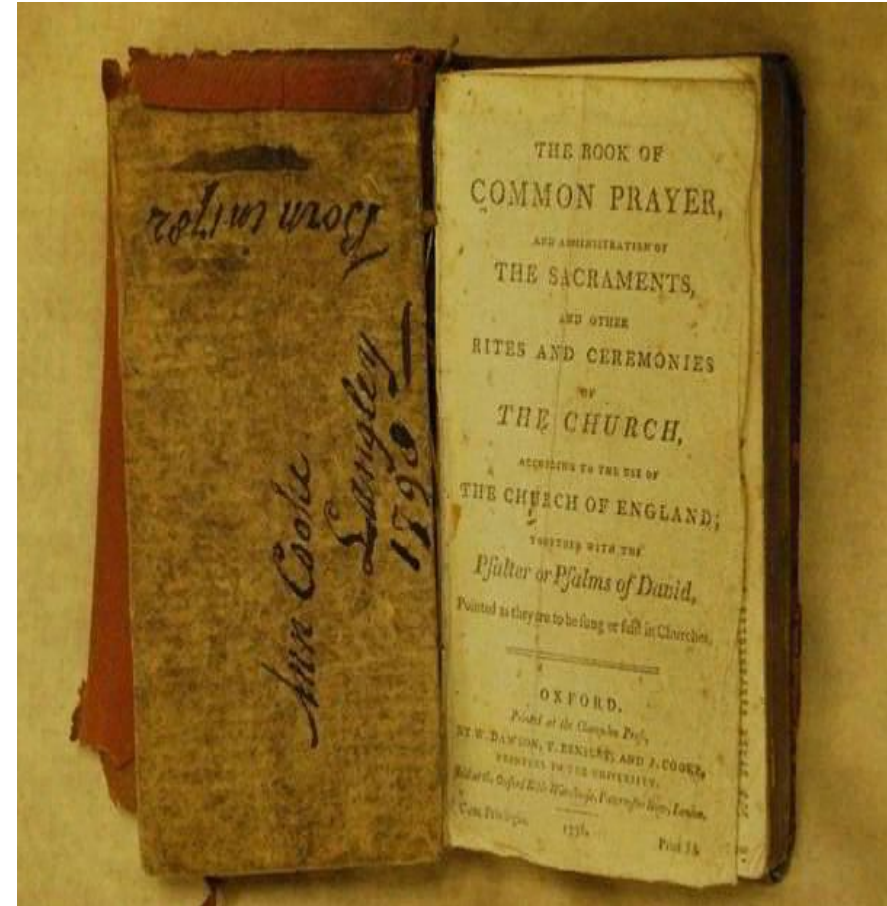 Born in 1782
Ann Cooke
Langley
1790
THE BOOK OF
COMMON PRAYER,
AND ADMINISTRATION OF
THE SACRAMENTS,
AND OTHER
RITES AND CEREMONIES
OF
THE CHURCH,
ACCORDING TO THE USE OF
THE CHURCH OF ENGLAND;
TOGETHER WITH THE
Pſalter or Pſalms of David,
Pointed as they are to be ſung or ſaid in Churches.
OXFORD,
Printed at the Clarendon Preſs,
BY W. DAWSON, T. BENSLEY, AND J. COOKE,
PRINTERS TO THE UNIVERSITY,
Sold at the Oxford Bible Warehouſe, Paternoſter Row, London.
Cum Privilegio.